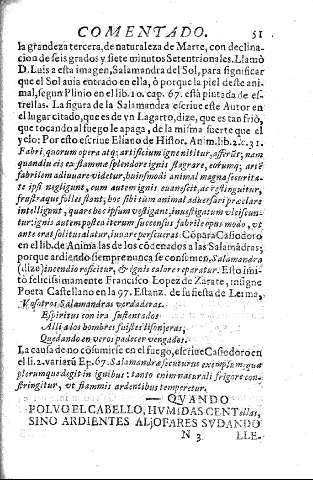 COMENTADO. 51
la grandeza tercera, de naturaleza de Marte, con declina-
cion de seis grados y siete minutos Setentrionales. Llamò
D. Luis a esta imagen, Salamandra del Sol, para significar
que el Sol auia entrado en ella, ò porque la piel deste ani-
mal, segun Plinio en el lib. 10. cap. 67. està pintada de es-
trellas. La figura de la Salamandra escriue este Autor en
el lugar citado, que es de vn Lagarto, dize, que es tan friò,
que tocando al fuego le apaga, de la misma suerte que el
yelo: Por esto escriue Eliano de Histor. Anim. lib. 2. c. 31.
Fabri, quorum opera atq; artificium igne nititur, asserũt; nam
quandiu eis ex flammæ splendore ignis flagrare, eorumq; arti
fabrilem adiuuare videtur, huiusmodi animal magna securita-
te ipsi negligunt, cum autem ignis euanescit, ac restinguitur,
frustraque folles flant; hoc sibi tum animal aduersari præclare
intelligunt, quare hoc ipsum vestigant, inuestigatum vlciscun-
tur: ignis autem postea iterum succensus fabrile opus modo, vt
ante erat solitus alatur, iuuare perseuerat. Cõpara Casiodoro
en el lib. de Anima las de los cõdenados a las Salamãdras;
porque ardiendo siempre nunca se consumen, Salamandra
(dize) incendio reficitur, & ignis calore reparatur. Esto imi-
tò felicissimamente Francisco Lopez de Zarate, insigne
Poeta Castellano en la 97. Estanz. de su fiesta de Lerma,
Vosotros Salamandras verdaderas
Espiritus con ira sustentados
Alli a los hombres fuistes lisonjeras,
Quedando en veros padecer vengados.
La causa de no cõsumirse en el fuego, escriue Casiodoro en
el li. 2. variarũ Ep. 67. Salamandræ secuturus exemplum, quæ
plerumque degit in ignibus: tanto enim naturali frigore con-
stringitur, vt flammis ardentibus temperetur.
QVANDO
POLVO EL CABELLO, HVMIDAS CENTellas,
SINO ARDIENTES ALjOFARES SVDANDO
N 3 LLE-